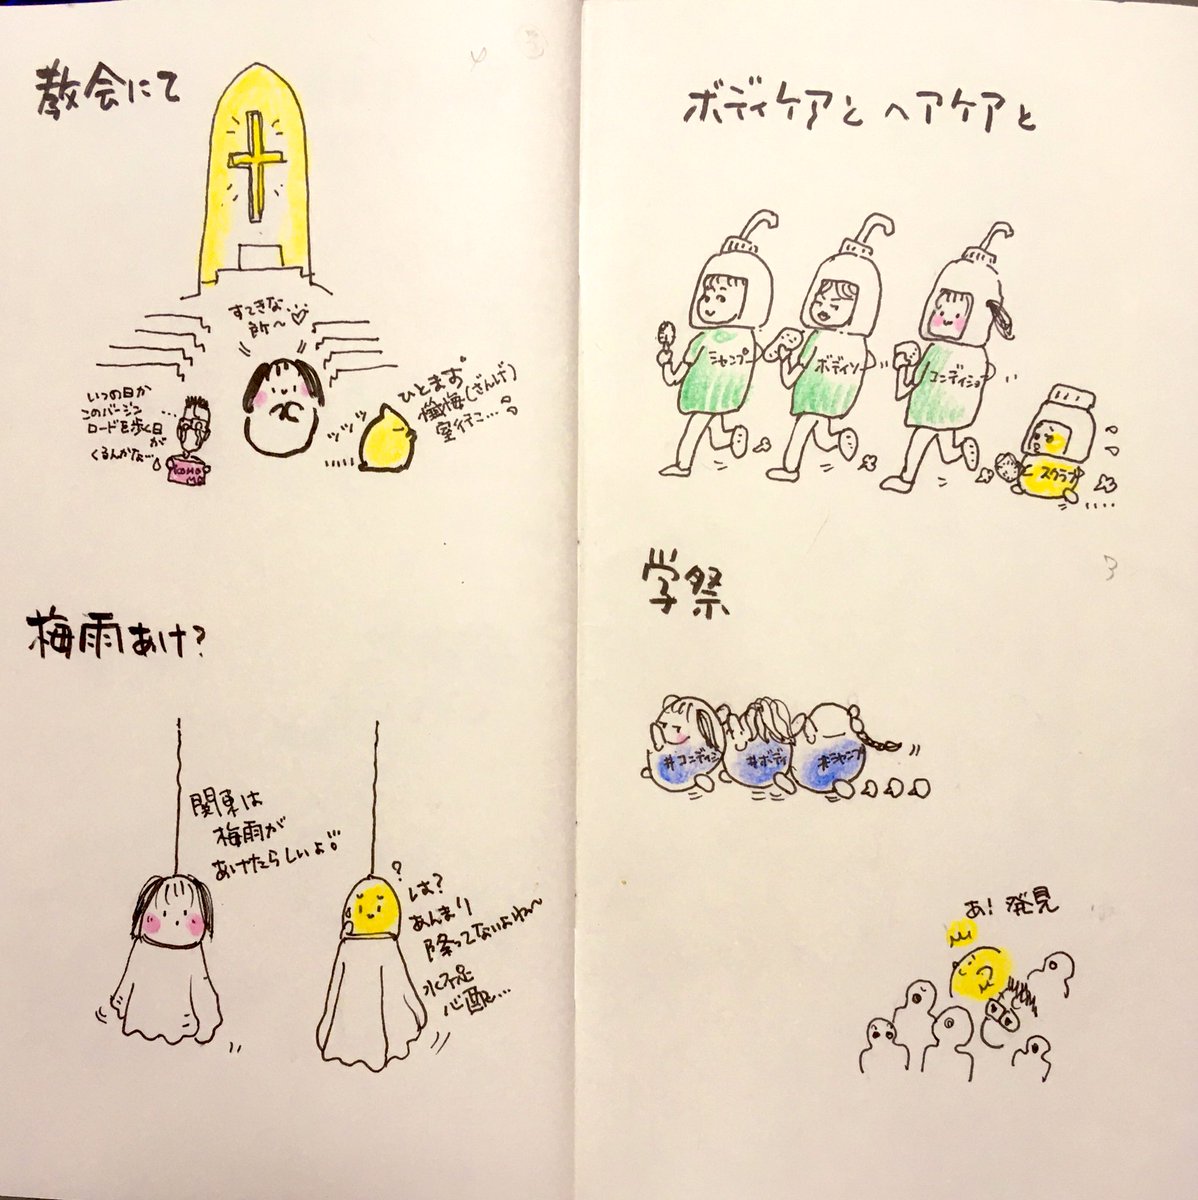 教会にて
すてきな…
所〜♡
いつの日か
このバージン
ロードを歩く日
が
くるんかな…
ツッツッ
ひとまず
懺悔(ざんげ)
室行こ…
梅雨あけ?
関東は
梅雨が
あけたらしいよ
?
は?
あんまり
降ってないよね〜
水不足
心配…
ボディケアとヘアケアと
シャンプー
ボディソー
コンディショ
スクラブ
学祭
#コンディシ
#ボディ
#シャンプ
あ!発見